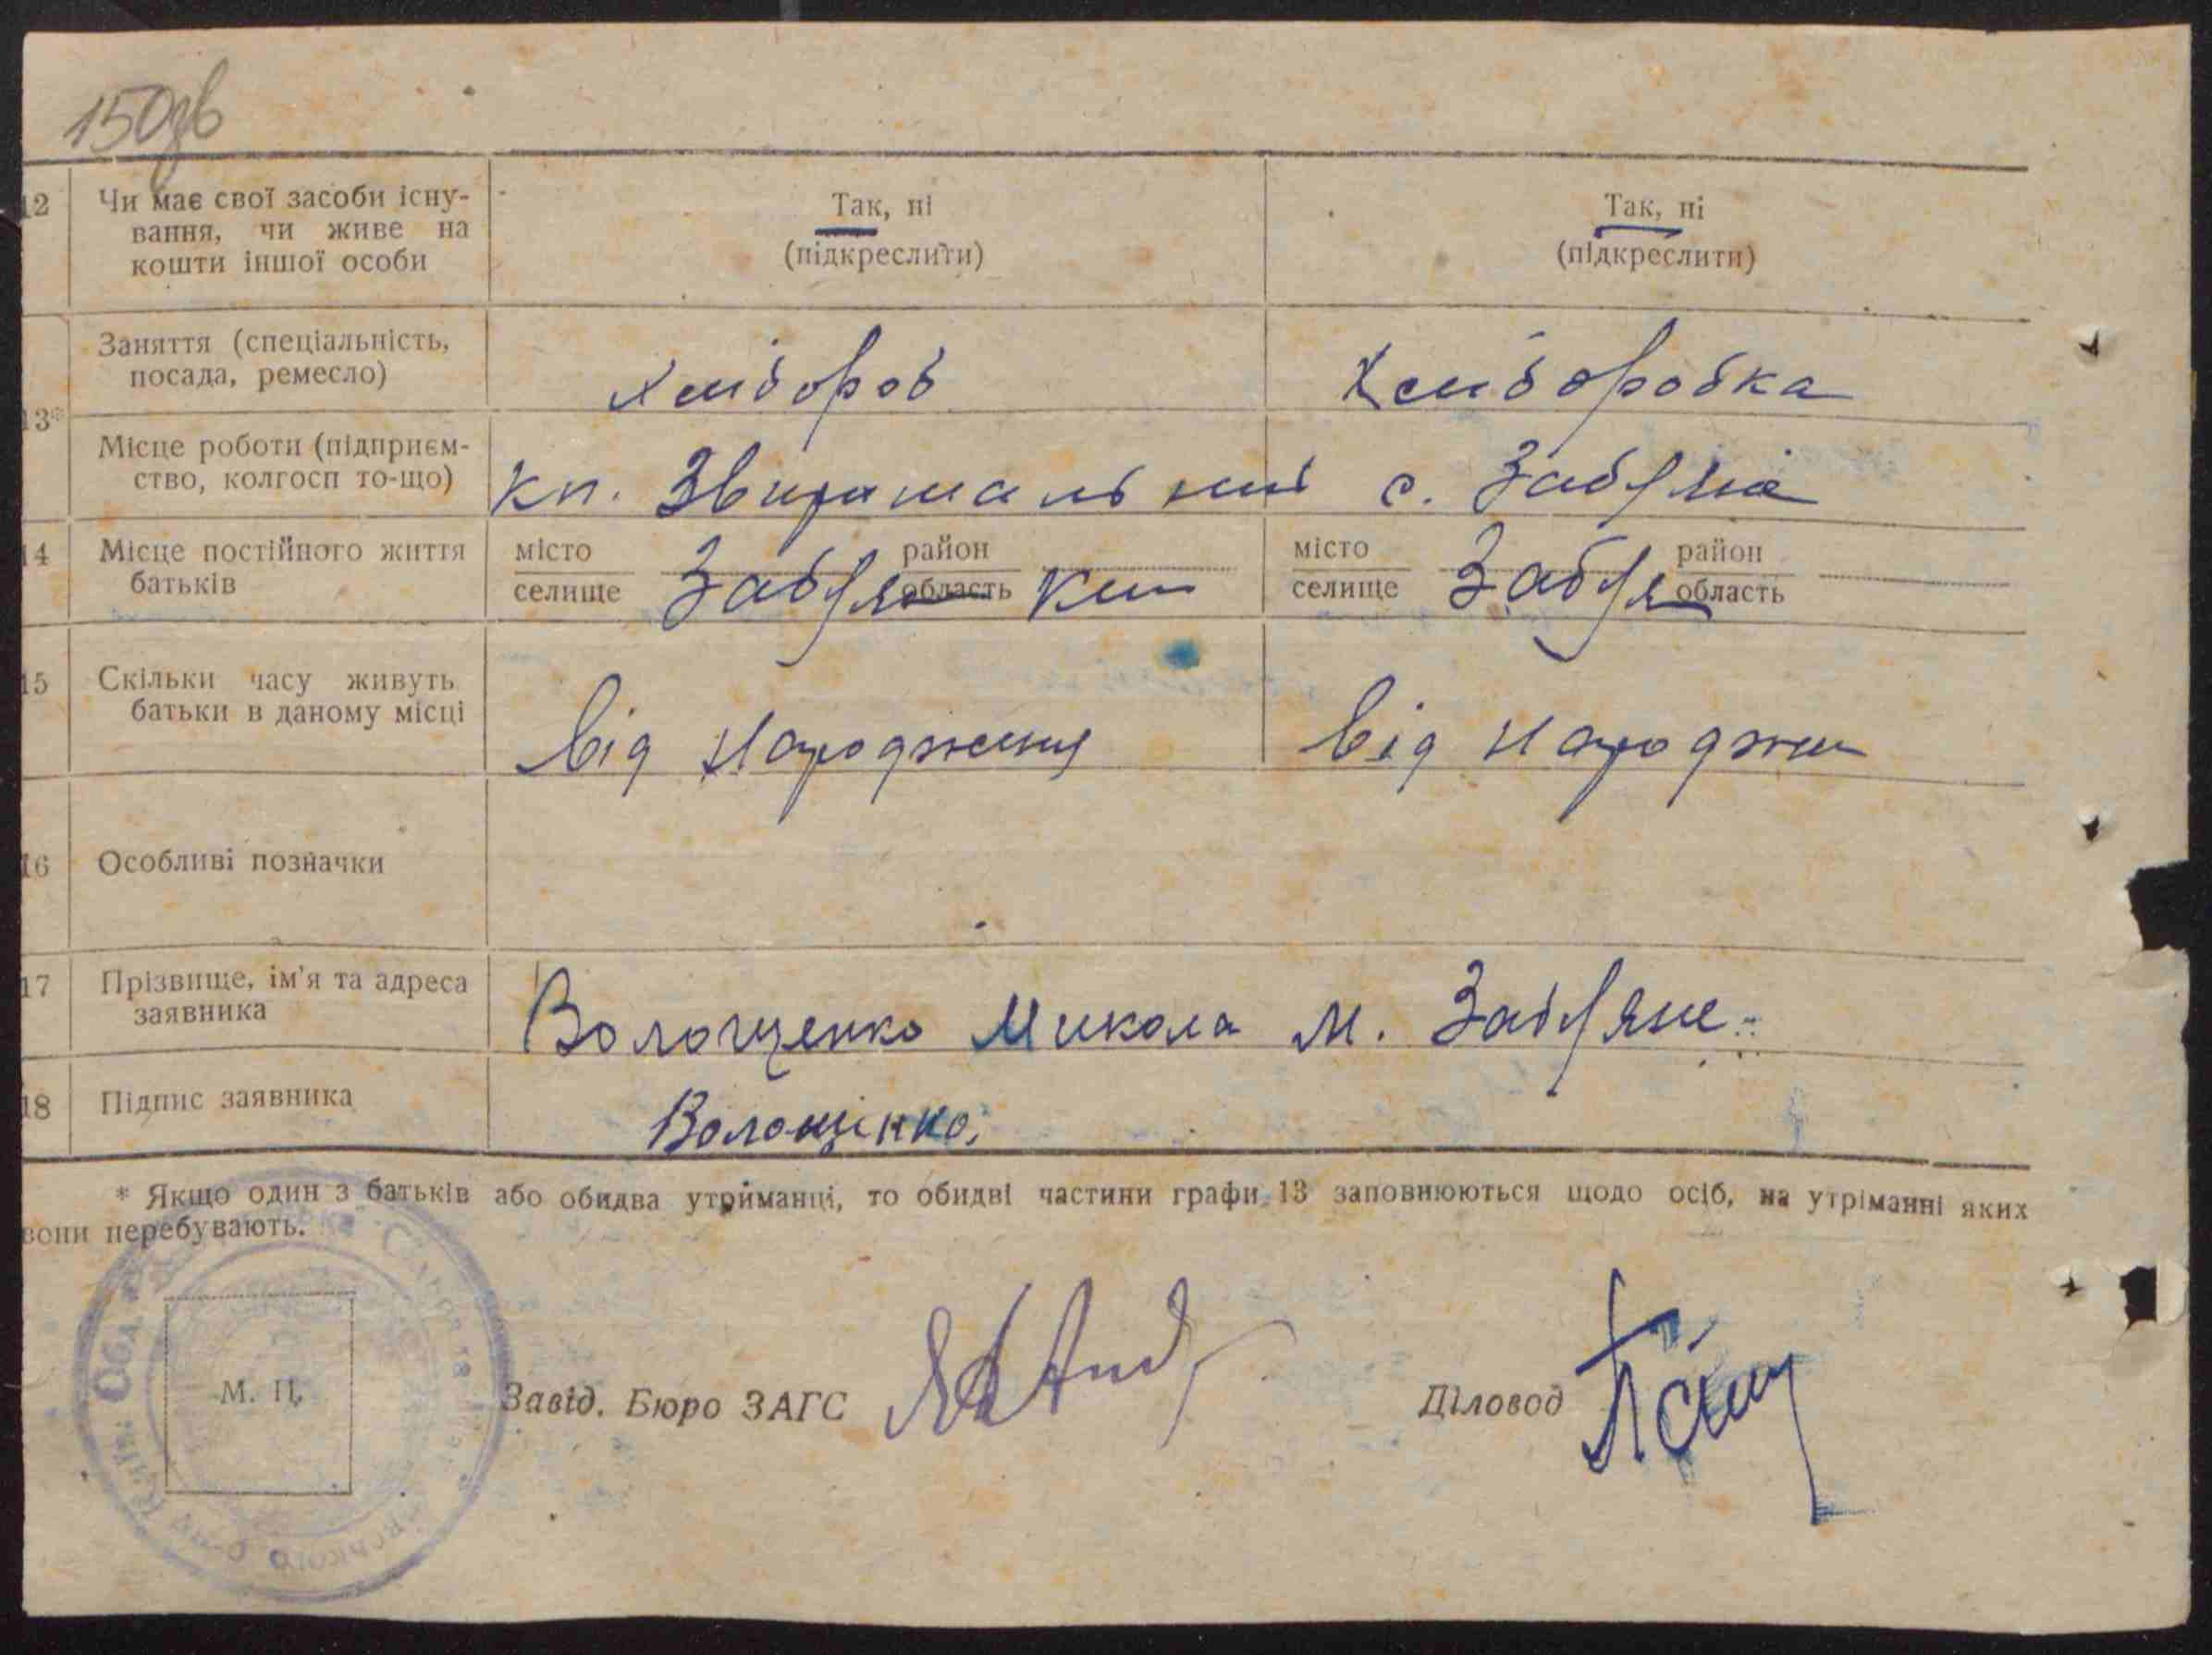 150зв
12 Чи має свої засоби існу-
вання, чи живе на
кошти іншої особи
Так, ні
(підкреслити)
Так, ні
(підкреслити)
13* Заняття (спеціальність,
посада, ремесло)
Хлібороб
Хліборобка
Місце роботи (підприєм-
ство, колгосп то-що)
с.
14 Місце постійного життя
батьків
місто
селище
район
область
місто
селище
район
область
15 Скільки часу живуть
батьки в даному місці
від народження
від народжен
16 Особливі позначки
17 Прізвище, ім'я та адреса
заявника
Волощенко Микола М.
18 Підпис заявника
Волощенко
* Якщо один з батьків або обидва утриманці, то обидві частини графи 13 заповнюються щодо осіб, на утріманні яких
вони перебувають.
М. П.
Завід. Бюро ЗАГС
Діловод